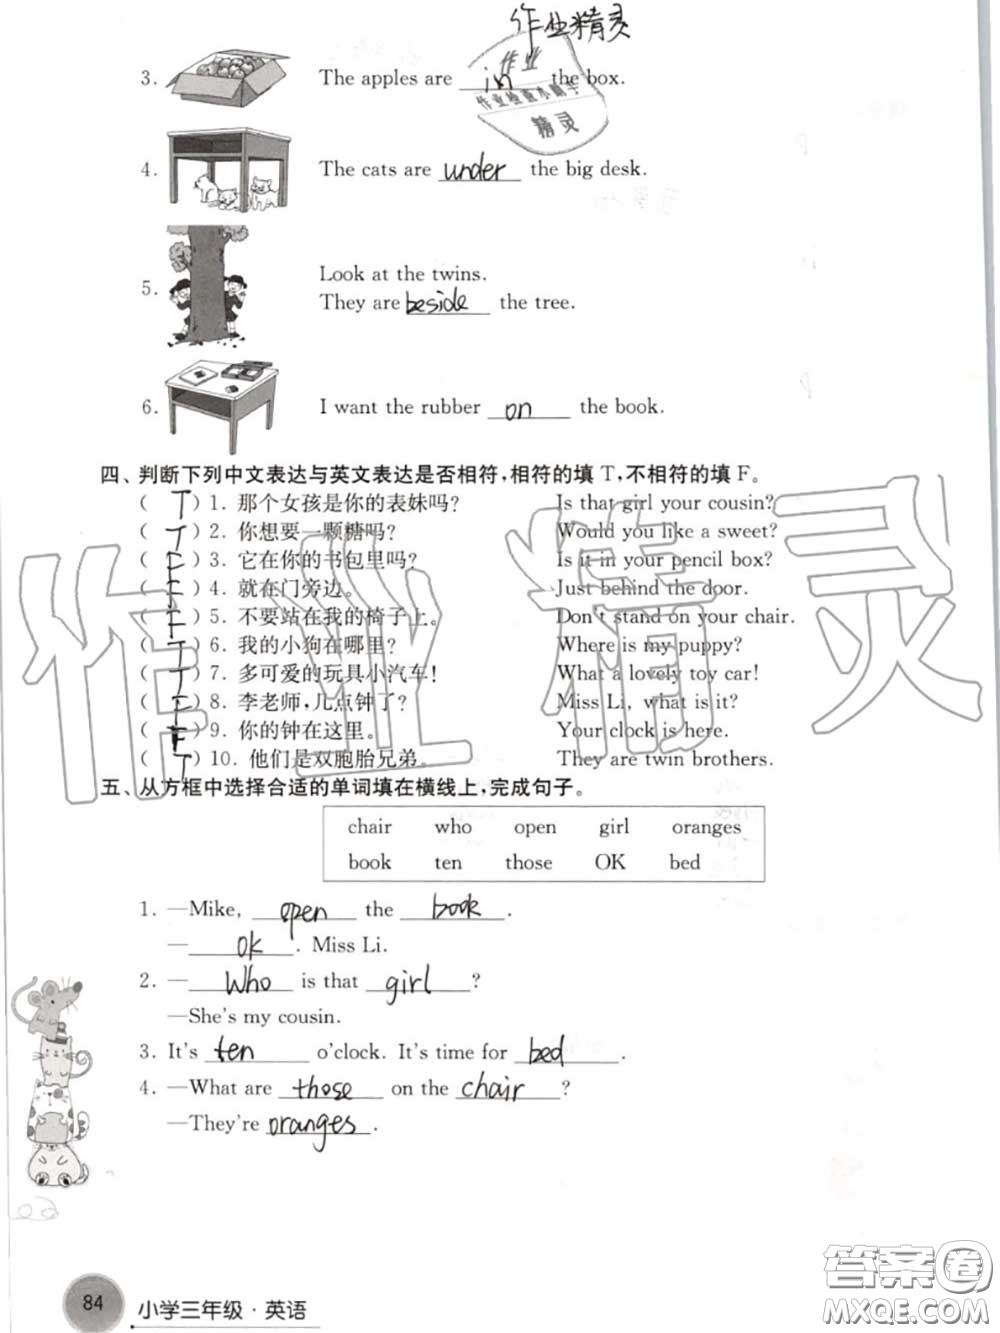 作业精灵
作业
作业检查小帮手
精灵
3. The apples are in the box.
4. The cats are under the big desk.
5. Look at the twins.
They are beside the tree.
6. I want the rubber on the book.
四、判断下列中文表达与英文表达是否相符,相符的填 T,不相符的填 F。
( T ) 1. 那个女孩是你的表妹吗? Is that girl your cousin?
( T ) 2. 你想要一颗糖吗? Would you like a sweet?
( F ) 3. 它在你的书包里吗? Is it in your pencil box?
( F ) 4. 就在门旁边。 Just behind the door.
( F ) 5. 不要站在我的椅子上。 Don't stand on your chair.
( T ) 6. 我的小狗在哪里? Where is my puppy?
( T ) 7. 多可爱的玩具小汽车! What a lovely toy car!
( F ) 8. 李老师,几点钟了? Miss Li, what is it?
( F ) 9. 你的钟在这里。 Your clock is here.
( T ) 10. 他们是双胞胎兄弟。 They are twin brothers.
作业精灵
五、从方框中选择合适的单词填在横线上,完成句子。
chair who open girl oranges
book ten those OK bed
1. —Mike, open the book.
—OK. Miss Li.
2. —Who is that girl?
—She's my cousin.
3. It's ten o'clock. It's time for bed.
4. —What are those on the chair?
—They're oranges.
84
小学三年级·英语
答案圈
MXQE.COM